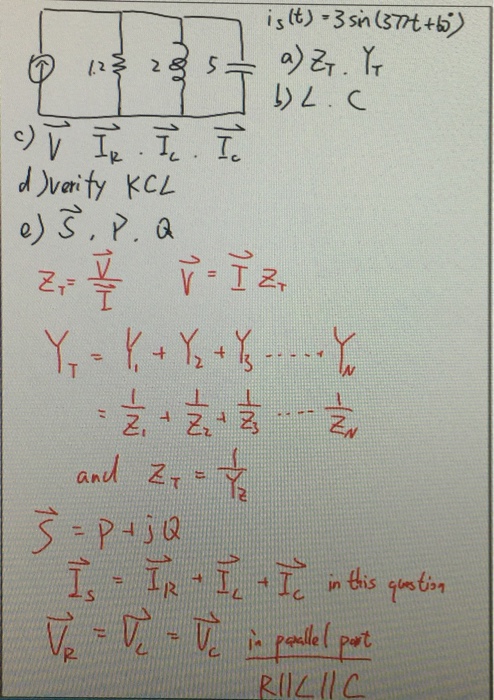 i_s(t) = 3 sin(377t + 60°)
1.2 2 5
a) Z_T . Y_T
b) L . C
c) V⃗ I⃗_R . I⃗_L . I⃗_C
d) verify KCL
e) S⃗ , P . Q
Z_T = V⃗ / I⃗ V⃗ = I⃗ Z_T
Y_T = Y_1 + Y_2 + Y_3 ...... Y_N
= 1/Z_1 + 1/Z_2 + 1/Z_3 .... 1/Z_N
and Z_T = 1/Y_Z
S⃗ = P + jQ
I⃗_S = I⃗_R + I⃗_L + I⃗_C in this question
V⃗_R = V⃗_L = V⃗_C in parallel part
R||L||C